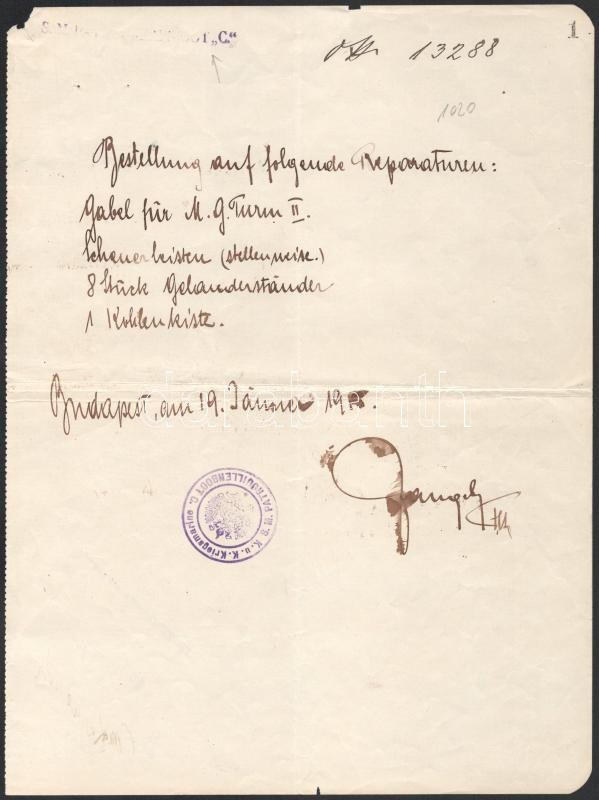 „C.“
1
13288
1020
Bestellung auf folgende Reparaturen:
Gabel für M. G. Turm II.
Scheuerleisten (stellenweise.)
8 Stück Geländerständer
1 Kohlenkiste.
Budapest, am 19. Jänner
darabanth
K. u. K. Kriegsmarine
PATROUILLENBOOT C.